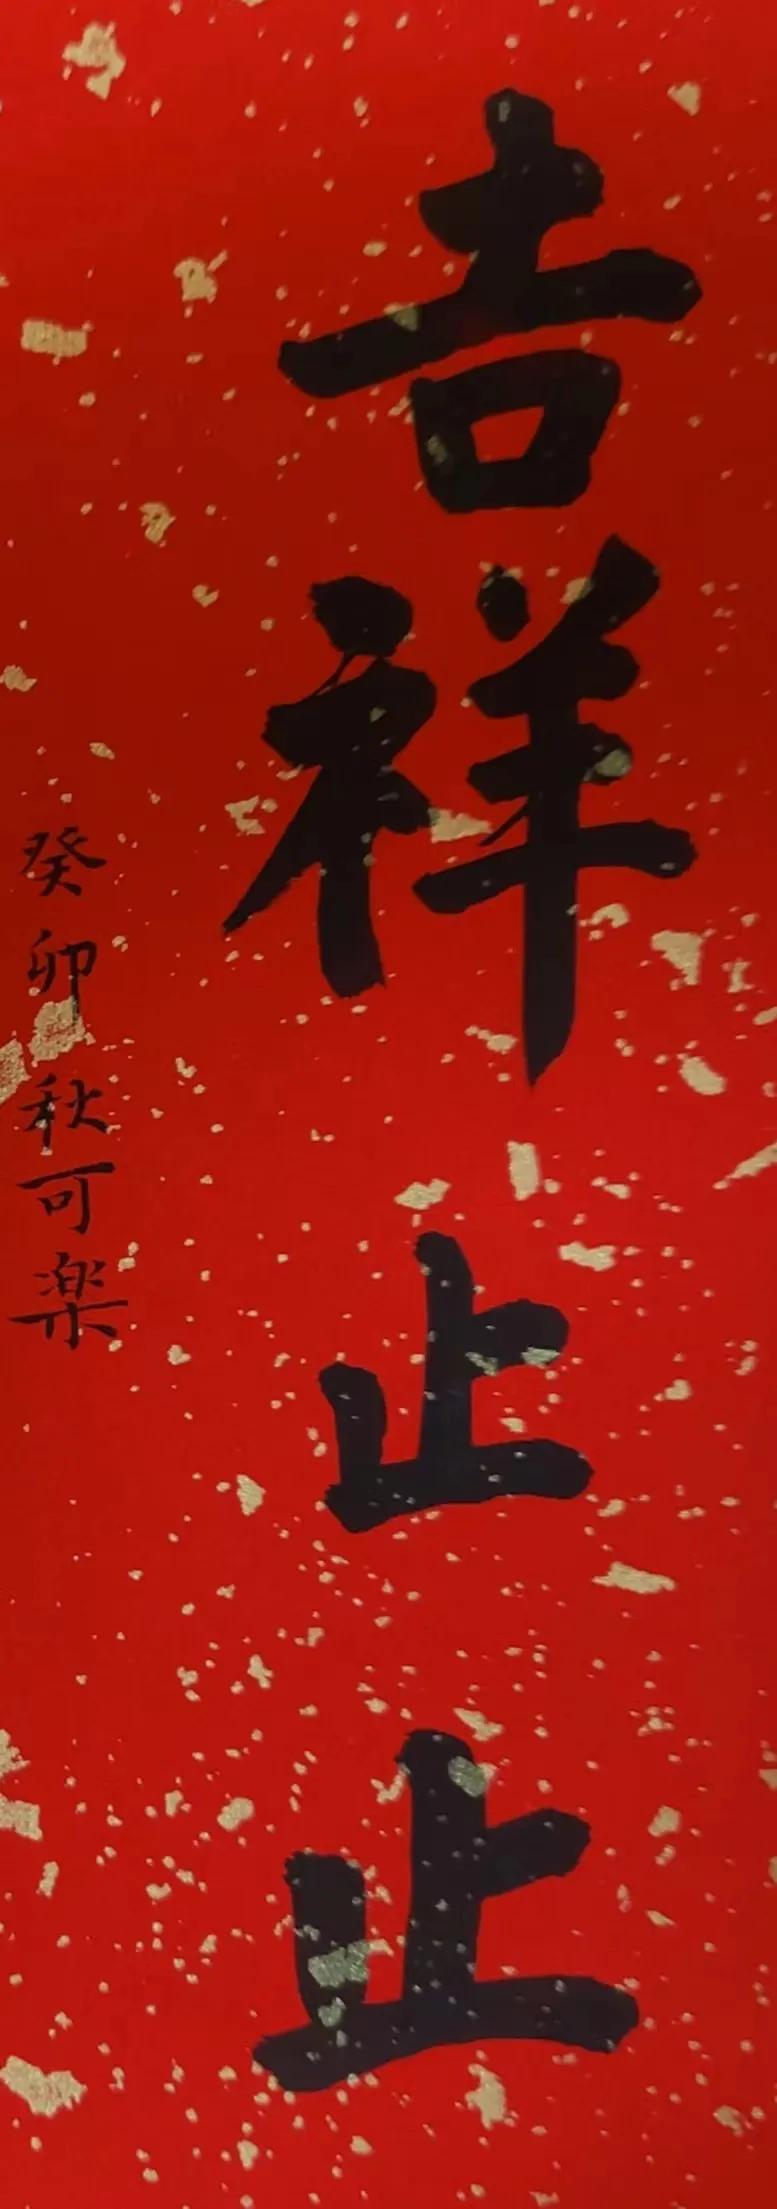 吉祥止止
癸卯秋可楽